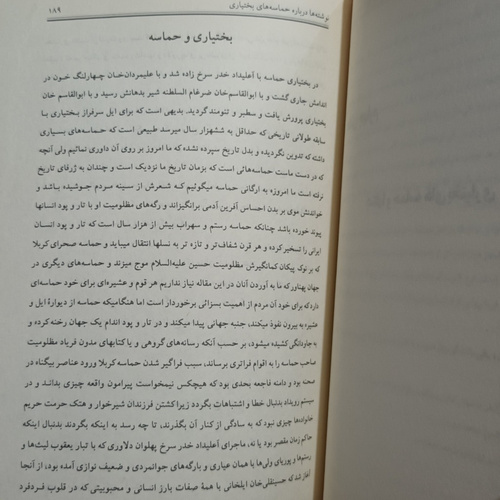 نوشته‌ها درباره حماسه‌های بختیاری ۱۸۹
بختیاری و حماسه
در بختیاری حماسه با آعلیداد خدر سرخ زاده شد و با علیمردان‌خان چهارلنگ خون در
اندامش جاری گشت و با ابوالقاسم‌خان ضرغام السلطنه شیر بدهانش رسید و با ابوالقاسم خان
بختیاری پرورش یافت و سطبر و تنومند گردید. بدیهی است که برای ایل سرفراز بختیاری با
سابقه طولانی تاریخی که حداقل به ششهزار سال میرسد طبیعی است که حماسه‌های بسیاری
داشته که تدوین نگردیده و بدل تاریخ سپرده نشده که ما امروز بر روی آن داوری نمائیم ولی آنچه
که در دست ماست حماسه‌هائی است که بزمان تاریخ ما نزدیک است و چندان به ژرفای تاریخ
نرفته است ما امروزه به ارگانی حماسه میگوئیم کـه شعرش از سـینه مـردم جـوشیده بـاشد و
خواندنش موی بر بدن احساس آفرین آدمی برانگیزاند و رگه‌های مظلومیت او با تار و پود انسانها
پیوند خورده باشد چنانکه حماسه رستم و سهراب بیش از هزار سال است که تار و پود انسان
ایرانی را تسخیر کرده و هر قرن شفاف‌تر و تازه تر به نسلها انتقال مییابد و حماسه صحرای کربلا
که بر نوک پیکان کمانگیرش مظلومیت حسین علیه‌السلام موج میزند و حماسه‌های دیگری در
جهان پهناور که ما به آوردن آنان در این مقاله نیاز نداریم هر قوم و عشیره‌ای برای خود حماسه‌ای
دارد که برای خود آن مردم از اهمیت بسزائی برخوردار است اما هنگامیکه حماسه از دیوارهٔ ایل و
عشیره به بیرون نفوذ میکند، جنبه جهانی پیدا میکند و در تار و پود اندام یک جهان رخنه کرده و
به جاودانگی کشیده میشود، بر حسب آنکه رسانه‌های گروهی و یا کتابهای مدون فریاد مظلومیت
صاحب حماسه را به اقوام فراتری برساند، سبب فراگیر شدن حماسه کربلا ورود عناصر بیگناه در
صحنه بود و دامنه فاجعه بحدی بود که هیچکس نیمخواست پیرامون واقعه چیزی بدانند و در
سیستم رویداد بدنبال خطا و اشتباهات بگردد زیرا کشتن فرزندان شیرخوار و هتک حرمت حریم
خانواده‌ها چیزی نبود که به سادگی از کنار آن بگذرند، تا چه رسد به اینکه بگردند بدنبال اینکه
حاکم زمان مقصر بود یا نه، ماجرای آعلیداد خدر سرخ پهلوان دلاوری که با تبار یعقوب لیث‌ها و
رستم‌ها و پوریای ولی‌ها با همان عیاری و بارگه‌های جوانمردی و ضعیف نوازی آمده بود، از آنجا
آغاز شد که حسینقلی‌خان ایلخانی با همهٔ صفات بارز انسانی و محبوبیتی که در قلوب فردفرد